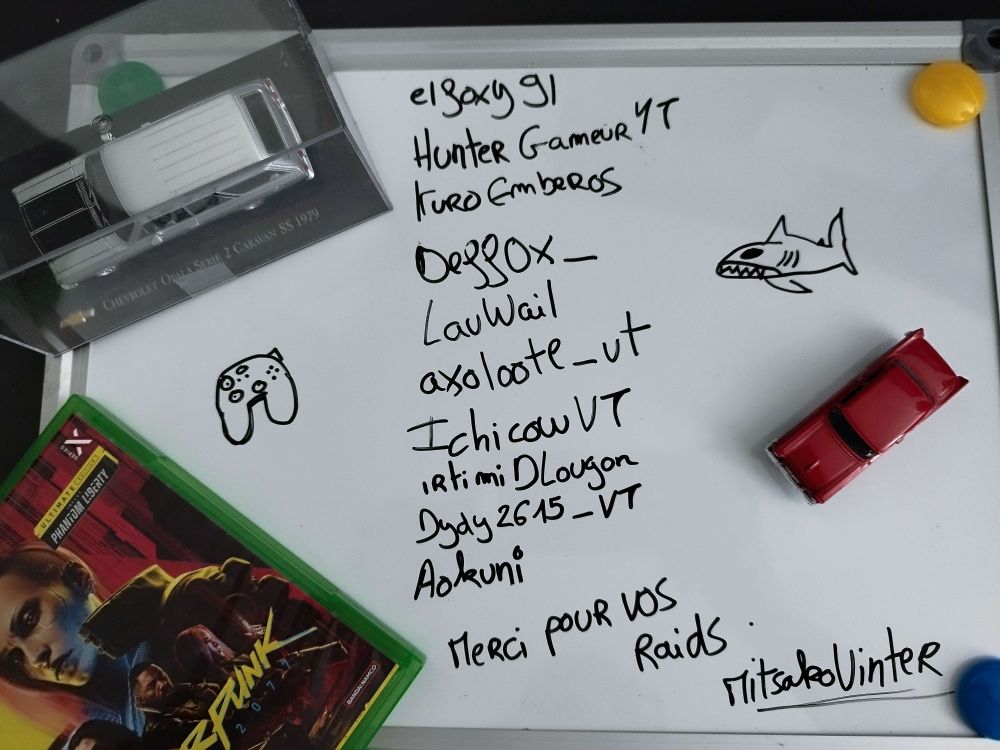 elfoxy91
Hunter Gameur YT
KuroEmberos
Deffox_
LauWail
axoloote_vt
IchicowVT
irtimiDLougon
Dydy2615_VT
Aokuni
Merci pour vos
Raids.
MitsakoVinter
CHEVROLET OPALA SERIE 2 CARAVAN SS 1979
X
SERIES
ULTIMATE EDITION
PHANTOM LIBERTY
RPUNK
2077
BANDAI NAMCO